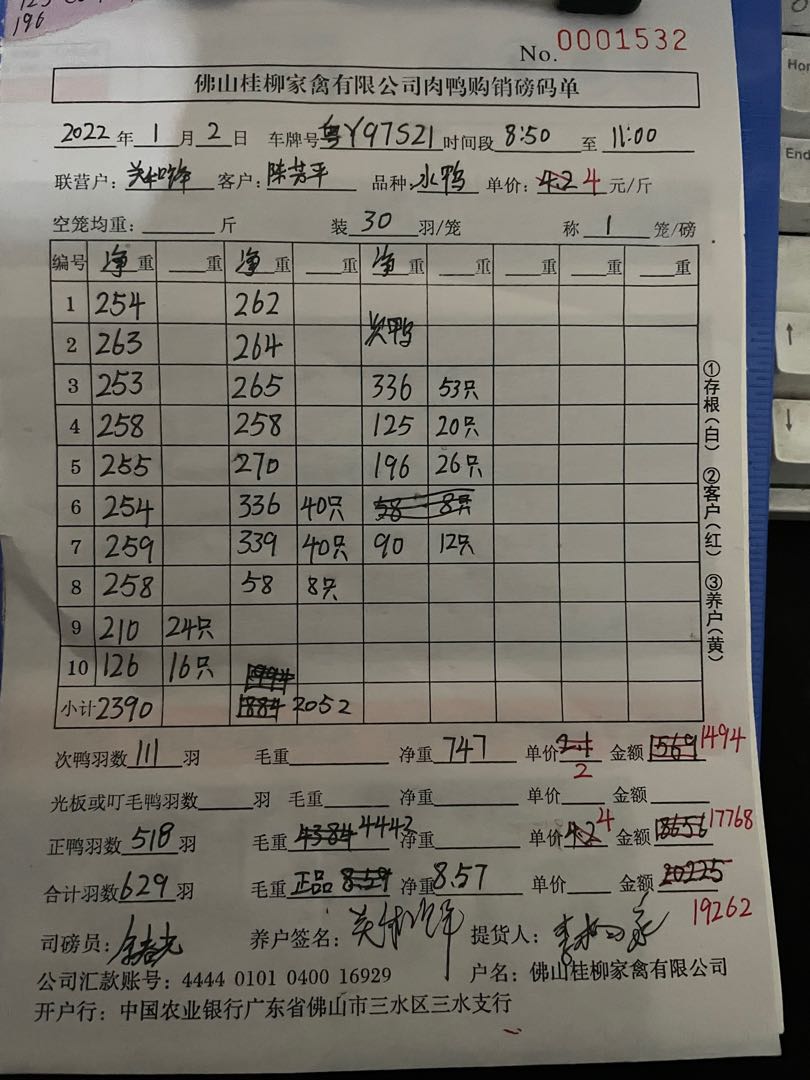 196
No. 0001532
佛山桂柳家禽有限公司肉鸭购销磅码单
2022 年 1 月 2 日 车牌号 粤Y97S21 时间段 8:50 至 11:00
联营户: 客户: 陈芳平 品种: 水鸭 单价: 4.2 4 元/斤
空笼均重: 斤 装 30 羽/笼 称 1 笼/磅
编号 净重 重 净重 重 净重 重 重 重
1 254 262
次鸭
2 263 264
3 253 265 336 53只
4 258 258 125 20只
5 255 270 196 26只
6 254 336 40只 58 8只
7 259 339 40只 90 12只
8 258 58 8只
9 210 24只
10 126 16只
小计 2390 1884 2052
次鸭羽数 111 羽 毛重 净重 747 单价 2.1 2 金额 1569 1494
光板或叮毛鸭羽数 羽 毛重 净重 单价 金额
正鸭羽数 518 羽 毛重 4384 4442 净重 单价 4.2 4 金额 18656 17768
合计羽数 629 羽 毛重 正品 8.59 净重 8.57 单价 金额 20225
19262
司磅员: 养户签名: 提货人:
公司汇款账号: 4444 0101 0400 16929 户名: 佛山桂柳家禽有限公司
开户行: 中国农业银行广东省佛山市三水区三水支行
①存根(白) ②客户(红) ③养户(黄)
Home
End
↑
↓